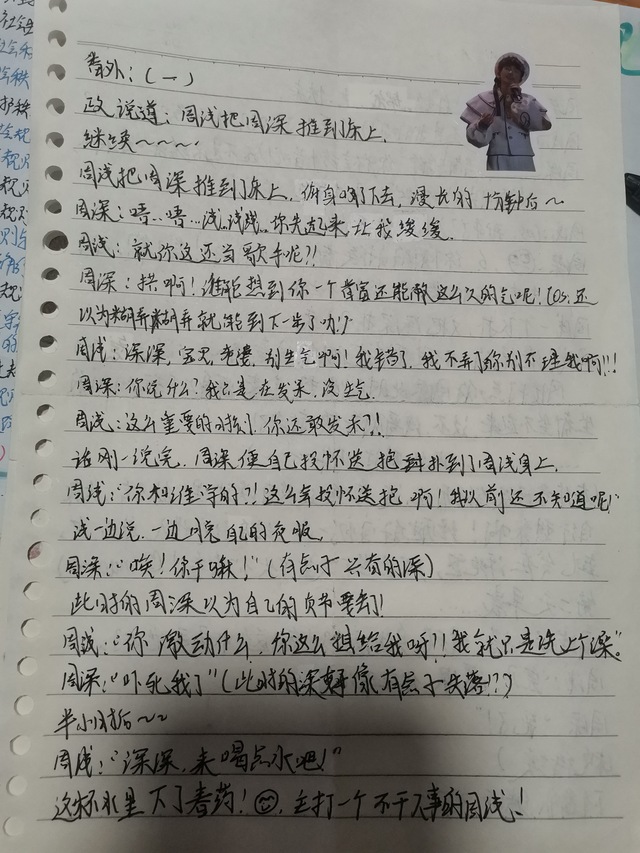 番外：（一）
政说道：周浅把周深推到床上，
继续～～～～
周浅把周深推到床上，俯身吻下去，漫长的十分钟后～
周深：唔…唔…浅，浅浅，你先起来让我缓缓.
周浅：就你这还当歌手呢？！
周深：拱啊！谁能想到你一个青盲还能憋这么久的气呢！（os：还
以为糊弄糊弄就能到下一步了呢！）
周浅：深深，宝贝，老婆，别生气啊！我错了，我不弄了你别不理我啊！！！
周深：你说什么？我只是在发呆，没生气.
周浅：这么重要的时刻，你还敢发呆？！
话刚一说完，周深便自己投怀送抱 扑到了周浅身上.
周浅："你和谁学的？！这么会投怀送抱啊！我以前还不知道呢！"
浅一边说，一边脱自己的衣服.
周深："唉！你干嘛！"（有点子兴奋的深）
此时的周深以为自己的贞节要到！
周浅："你激动什么，你这么想给我呀？！我就只是洗个澡."
周深："吓死我了"（此时的深好像有点子失落！？）
半小时后～～
周浅："深深，来喝点水吧！"
这杯水里下了春药！主打一个不干人事的周浅！